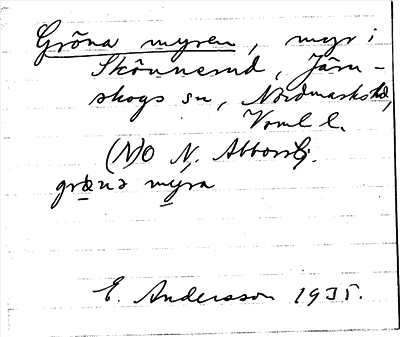 Gröna myren, myr i
Skönnerud, Järn-
skogs sn, Nordmarks hd,
Värml l.
(N)O N. Abborrtj.
grœ̱na my̱ra
E. Andersson 1935.